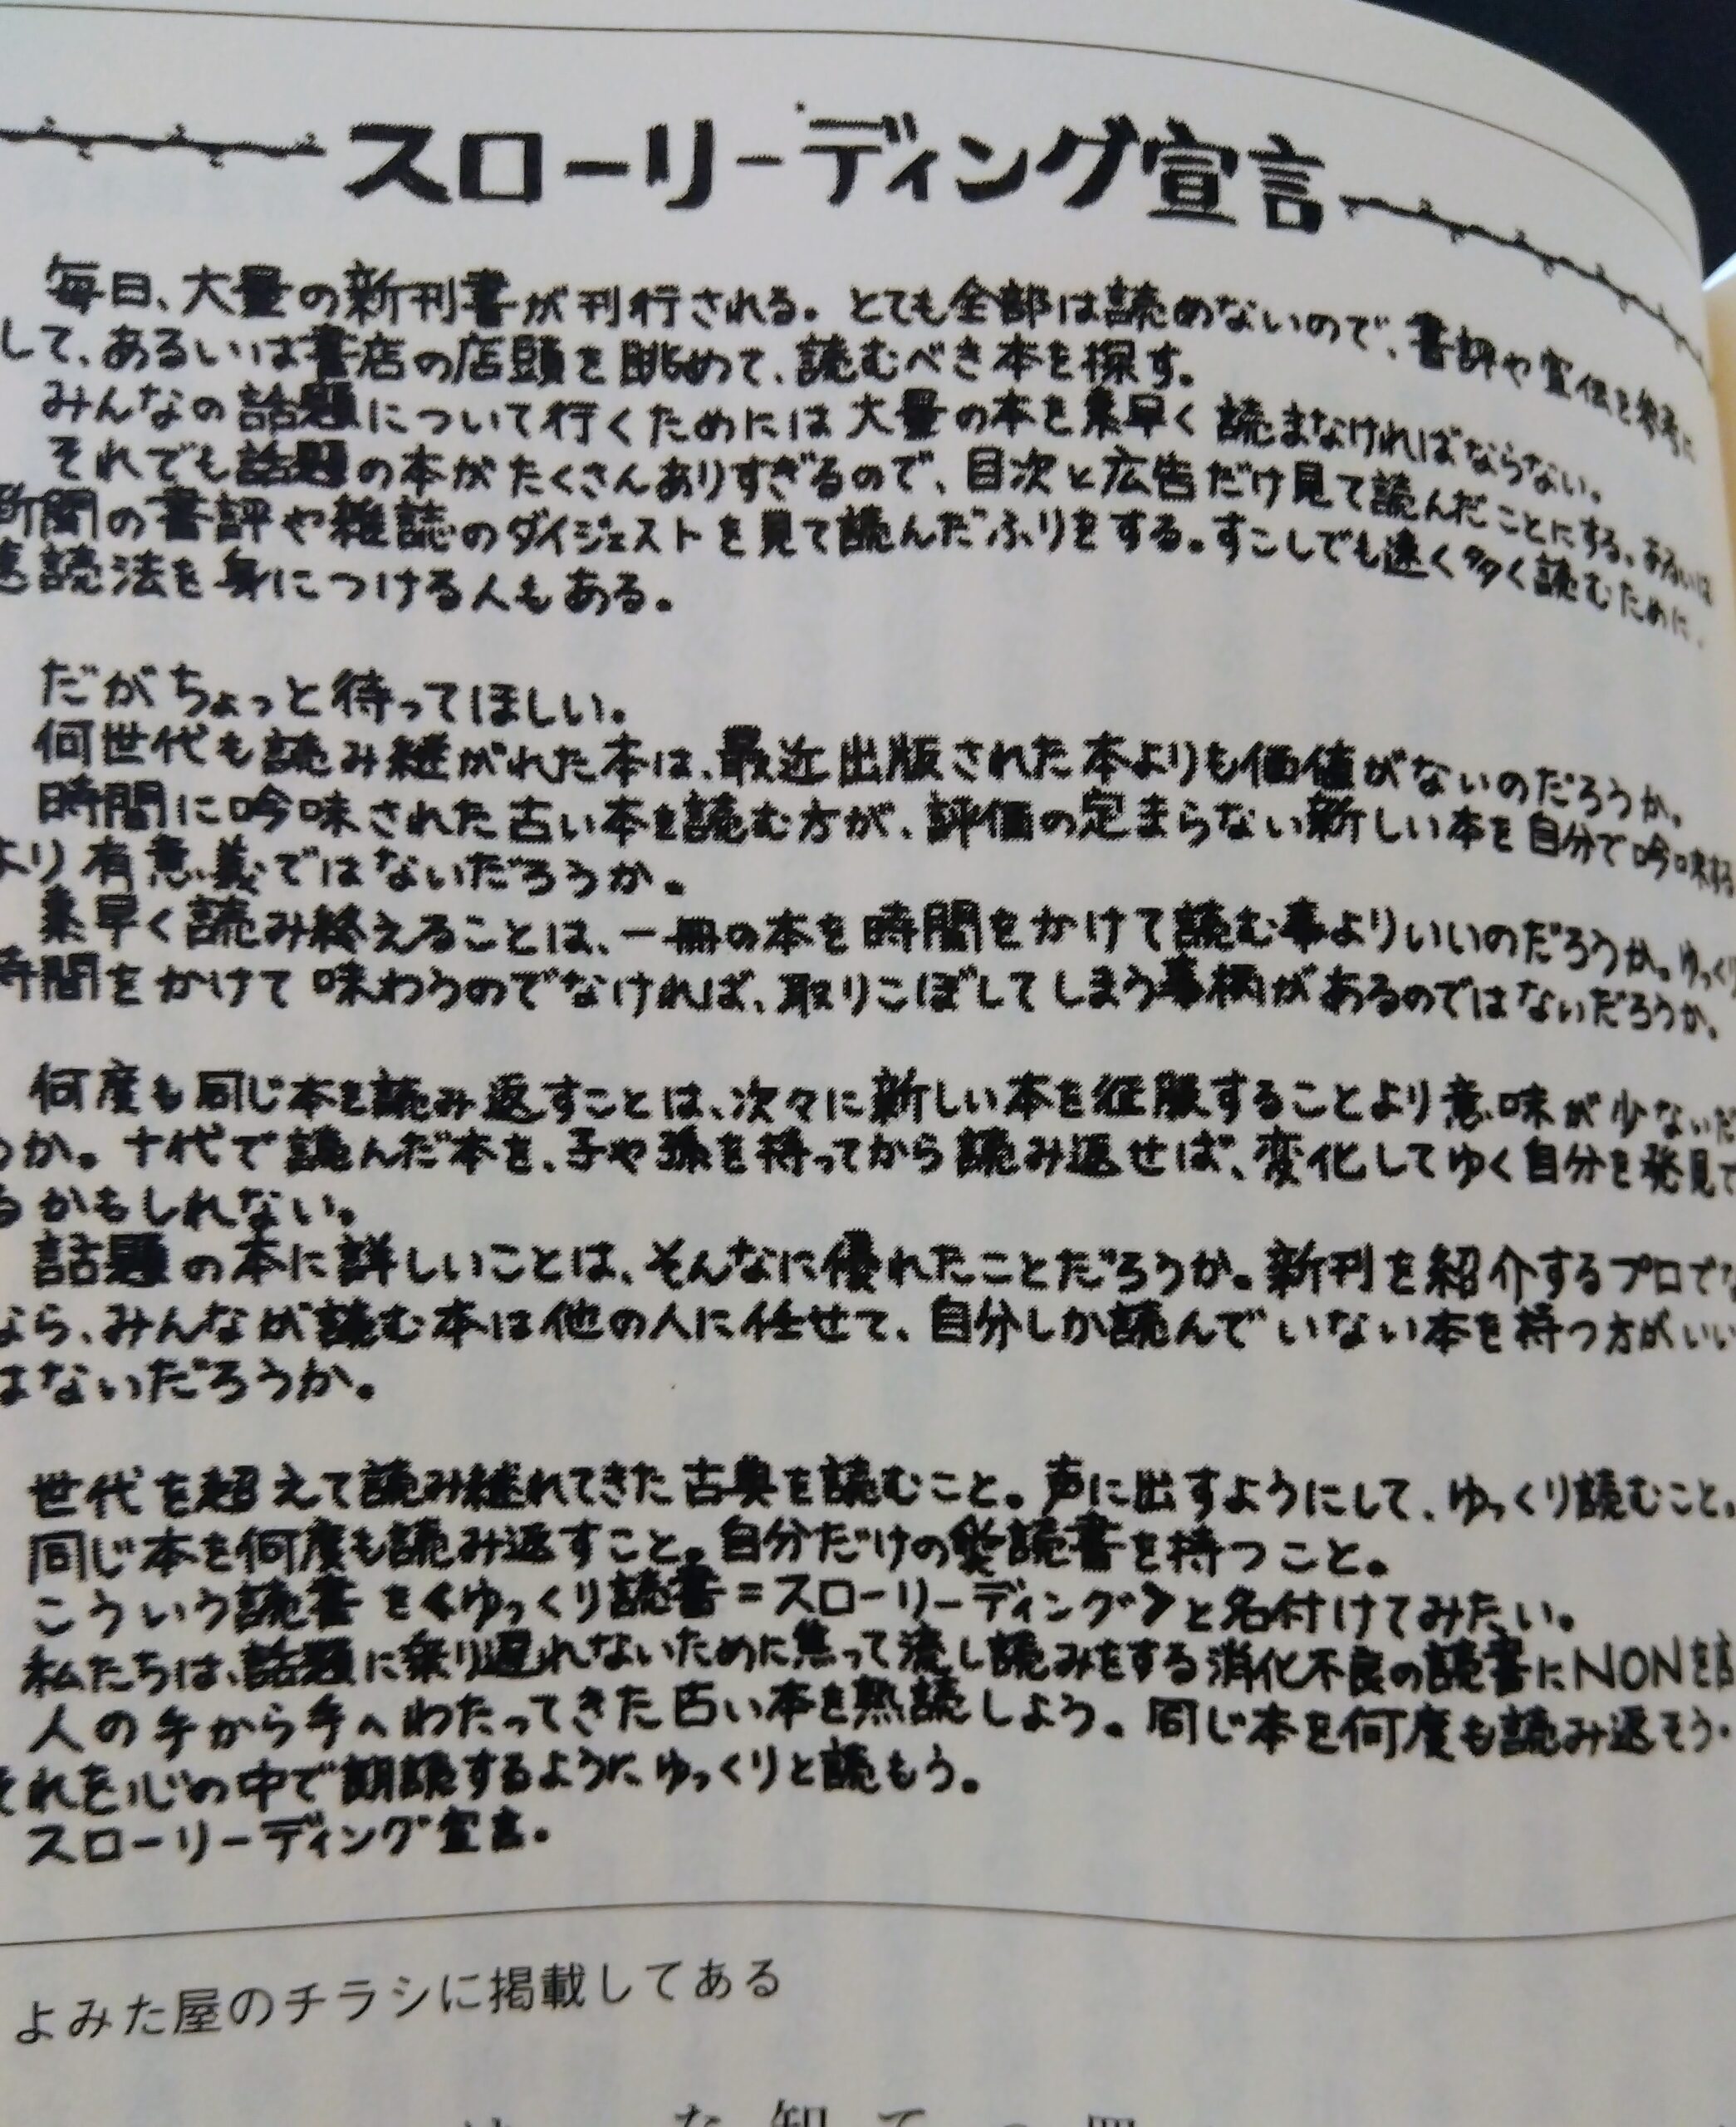 スローリーディング宣言
毎日、大量の新刊書が刊行される。とても全部は読めないので、書評や宣伝を参考に
して、あるいは書店の店頭を眺めて、読むべき本を探す。
みんなの話題について行くためには大量の本を素早く読まなければならない。
それでも話題の本がたくさんありすぎるので、目次と広告だけ見て読んだことにする、あるいは
新聞の書評や雑誌のダイジェストを見て読んだふりをする。すこしでも速く多く読むために、
速読法を身につける人もある。
だがちょっと待ってほしい。
何世代も読み継がれた本は、最近出版された本よりも価値がないのだろうか。
時間に吟味された古い本を読む方が、評価の定まらない新しい本を自分で吟味する
より有意義ではないだろうか。
素早く読み終えることは、一冊の本を時間をかけて読む事よりいいのだろうか。ゆっくり
時間をかけて味わうのでなければ、取りこぼしてしまう事柄があるのではないだろうか。
何度も同じ本を読み返すことは、次々に新しい本を征服することより意味が少ないだ
うか。十代で読んだ本を、子や孫を持ってから読み返せば、変化してゆく自分を発見で
るかもしれない。
話題の本に詳しいことは、そんなに優れたことだろうか。新刊を紹介するプロでな
なら、みんなが読む本は他の人に任せて、自分しか読んでいない本を持つ方がいい
はないだろうか。
世代を超えて読み継れてきた古典を読むこと。声に出すようにして、ゆっくり読むこと。
同じ本を何度も読み返すこと。自分だけの愛読書を持つこと。
こういう読書を<ゆっくり読書=スローリーディング>と名付けてみたい。
私たちは、話題に乗り遅れないために焦って流し読みをする消化不良の読書にNONを
人の手から手へわたってきた古い本を熟読しよう。同じ本を何度も読み返そう。
それを心の中で朗読するようにゆっくりと読もう。
スローリーディング宣言。
よみた屋のチラシに掲載してある